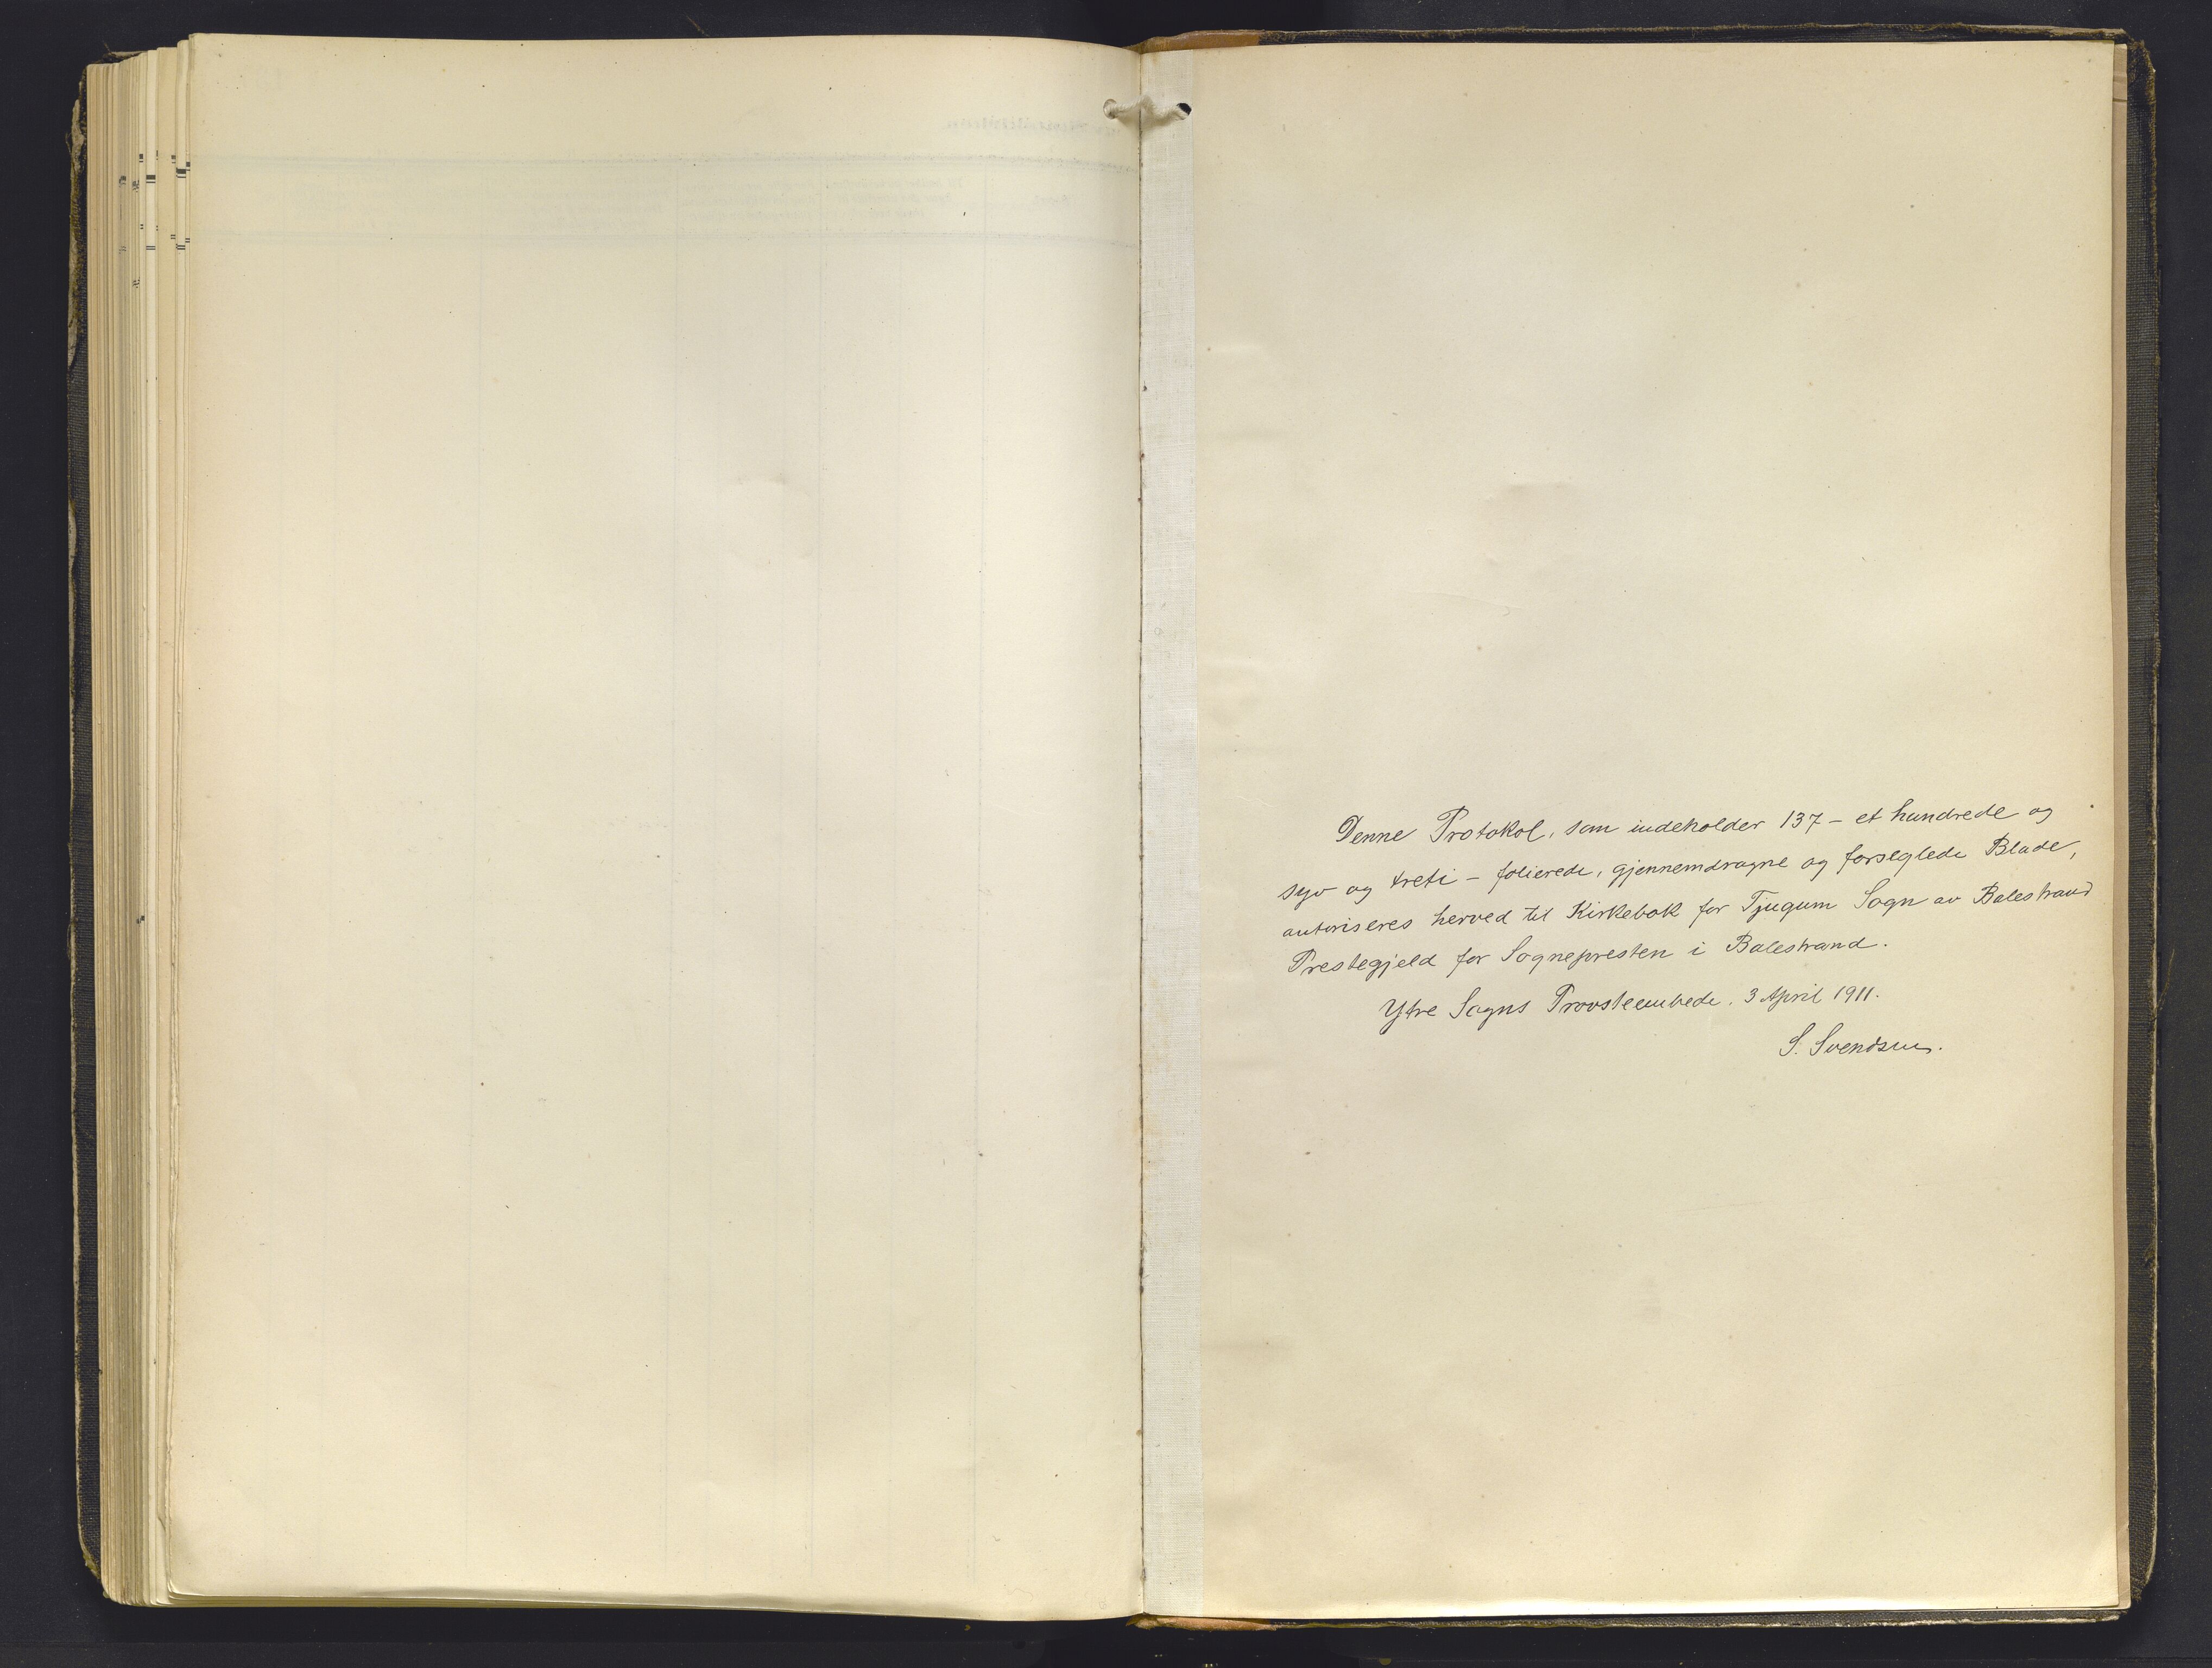 Denne Protokol, som indeholder 137 – et hundrede og
syv og treti – folierede, gjennemdragne og forseglede Blade,
autoriseres herved til Kirkebok for Tjugum Sogn av Balestrand
Prestegjeld for Sognepresten i Balestrand.
Ytre Sogns Provsteembede, 3 April 1911.
S. Svendsen.